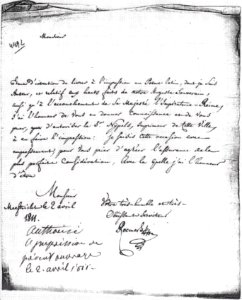 Monsieur
J'ai l'intention de livrer à l'impression un Poème latin, dont je suis
Auteur, et relatif aux hauts faits de notre Auguste Souverain,
ainsi qu'à l'accouchement de Sa Majesté l'Impératrice et Reine,
j'ai l'honneur de vous en donner connaissance et de vous
prier, que d'autoriser le Sr. Nypels, Imprimeur de cette Ville,
à en faire l'impression; je saisis cette occasion avec
empressement, pour vous prier d'agréer l'assurance de la
plus parfaite Considération, avec laquelle j'ai l'honneur
d'être
Monsieur
Maestricht le 2 avril
1811.
Votre très humble et très
Obéissant Serviteur
authorisé
l'impression de
présent ouvrage
le 2 avril 1811.